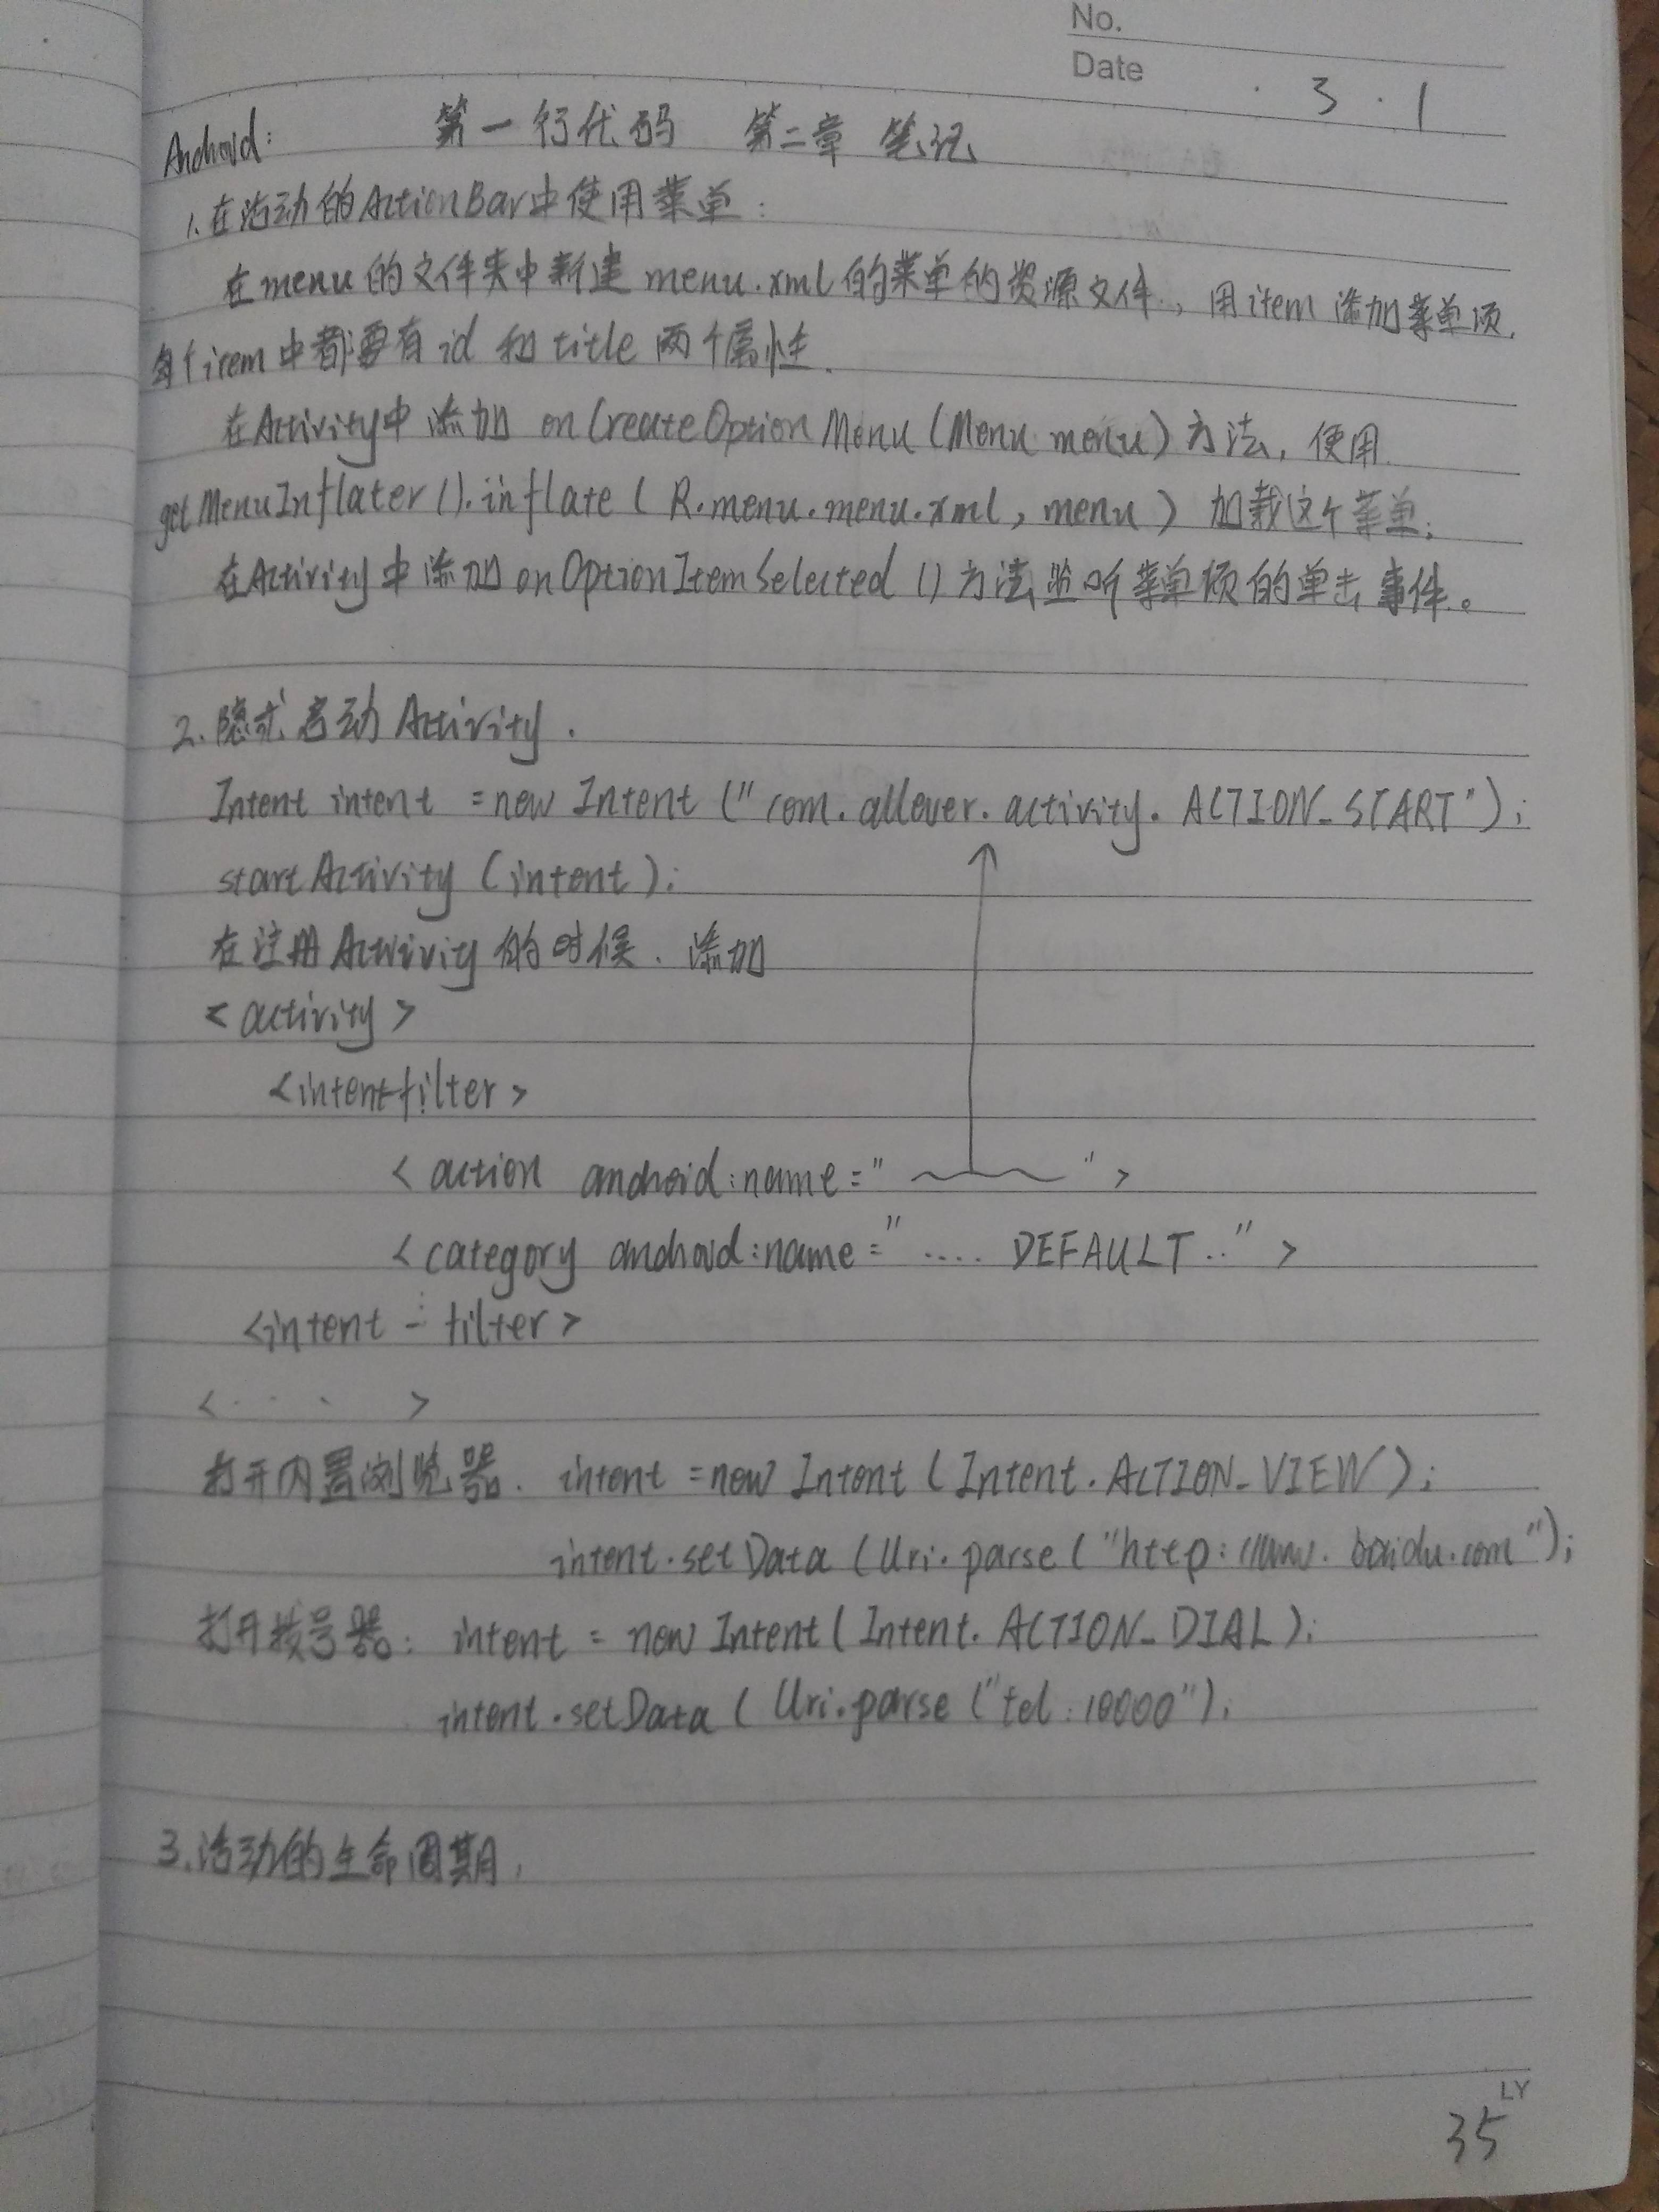 No.
Date
· 3 · 1
Android: 第一行代码 第二章 笔记
1.在活动的ActionBar中使用菜单:
在menu的文件夹中新建 menu.xml的菜单的资源文件,用item添加菜单项.
每个irem中都要有id 和 title 两个属性.
在Activity中添加 onCreateOptionMenu(Menu menu)方法,使用
getMenuInflater().inflate(R.menu.menu.xml,menu) 加载这个菜单;
在Activity中添加onOptionItemSelected()方法监听菜单项的单击事件。
2.隐式启动Activity.
Intent intent =new Intent("com.allover.activity.ACTION_START");
startActivity(intent);
在注册Activity的时候.添加
<activity>
<intent-filter>
<action android:name=" ">
<category android:name=".... DEFAULT ..">
<intent-filter>
<· · · >
打开内置浏览器. intent =new Intent(Intent.ACTION_VIEW);
intent.setData(Uri.parse("http://www.baidu.com");
打开拨号器: intent = new Intent(Intent.ACTION_DIAL);
intent.setData(Uri.parse("tel:10000");
3.活动的生命周期,
LY
35